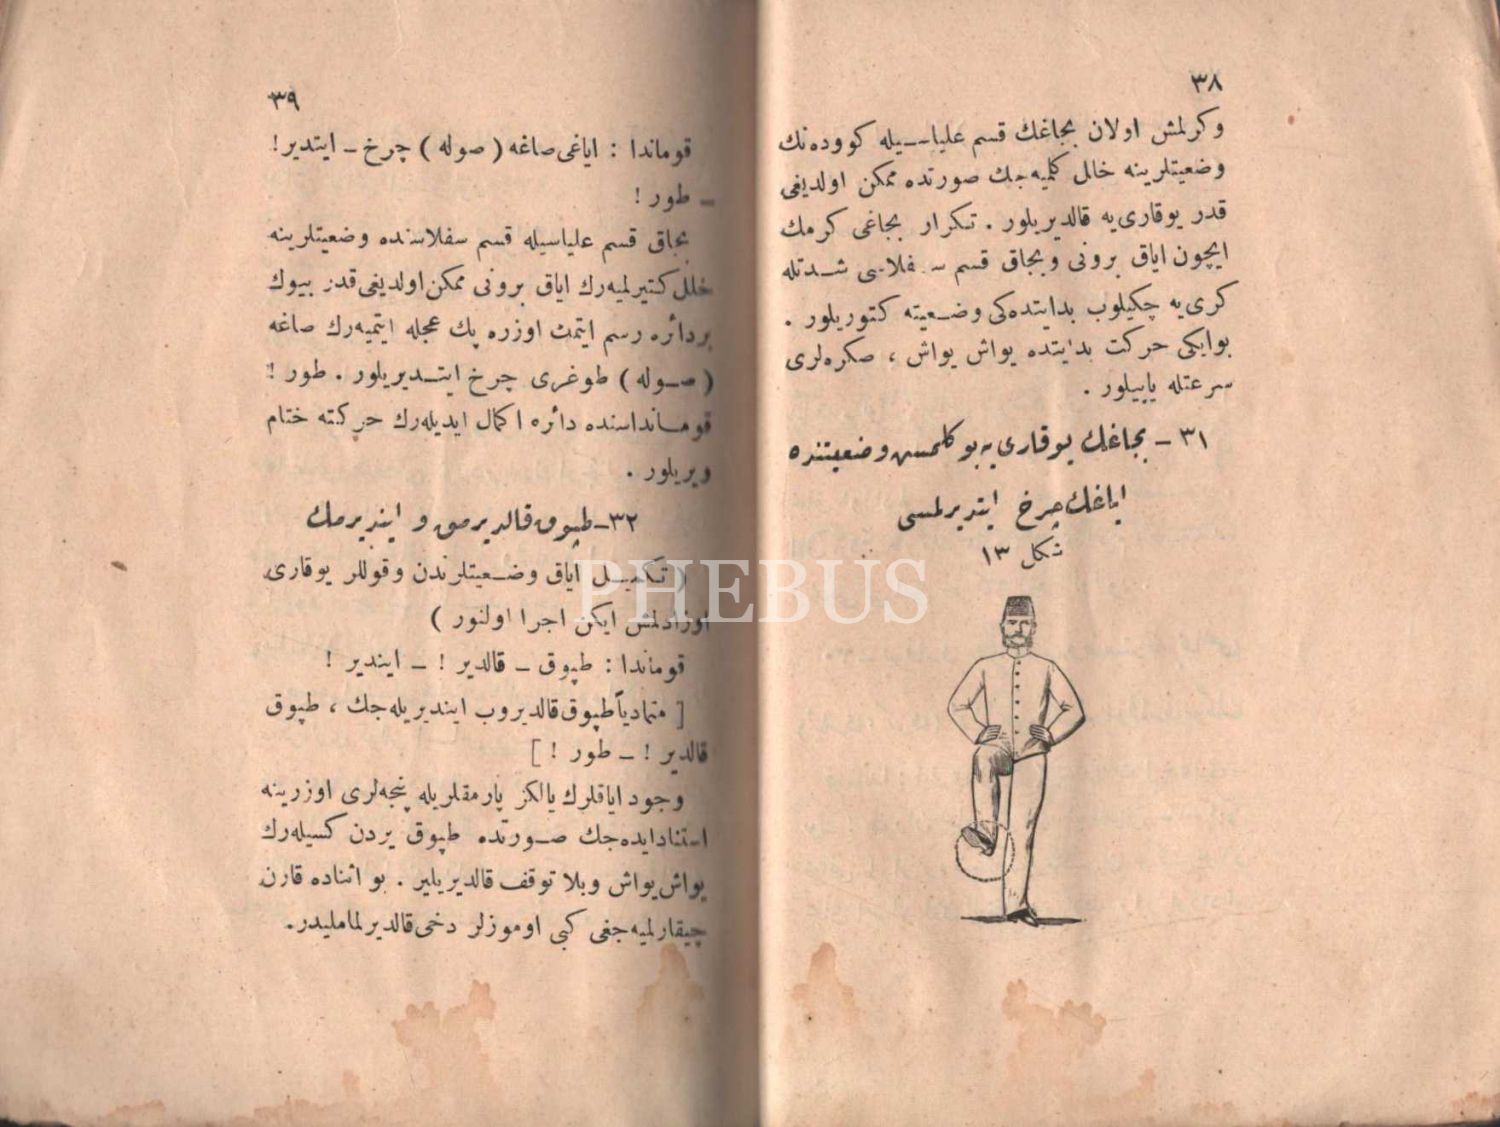 ٣٨
وكرلمش اولان بجاغك قسم علياسيله كوودەنك
وضعيتلرينه خلل كلميه‌جك صورتده ممكن اولديغى
قدر يوقارى‌يه قالديريلور . تكرار بجاغى كرمك
ايچون اياق برونى وبجاق قسم سفلاسى شدتله
كرى‌يه چكيلوب بدايتده‌كى وضعيته كتوريلور .
بوايكى حركت بدايتده يواش يواش ، صكره‌لرى
سرعتله ياپيلور .
٣١ – بجاغك يوقارى يه بوكلمسى وضعيتنده
اياغك چرخ ايتديرلمسى
شكل ١٣
٣٩
قوماندا : اياغى صاغه ( صوله ) چرخ – ايتدير !
– طور !
بجاق قسم علياسيله قسم سفلاسنده وضعيتلرينه
خلل كتيرلميه‌رك اياق برونى ممكن اولديغى قدر بيوك
بردائره رسم ايتمك اوزره پك عجله ايتميه‌رك صاغه
( صوله ) طوغرى چرخ ايتديريلور . طور !
قومانداسنده دائره اكمال ايديله‌رك حركته ختام
ويريلور .
٣٢– طپوق قالديرمق و اينديرمك
( تكميل اياق وضعيتلرندن وقوللر يوقارى
اوزادلمش ايكن اجرا اولنور )
قوماندا : طپوق – قالدير ! – ايندير !
[ متمادياً طپوق قالديروب اينديريله‌جك ، طپوق
قالدير ! – طور ! ]
وجود اياقلرك يالكز پارمقلريله پنجه‌لرى اوزرينه
استناد ايده‌جك صورتده طپوق يردن كسيله‌رك
يواش يواش وبلا توقف قالديريلير . بو اثناده قارن
چيقارلميه‌جغى كبى اوموزلر دخى قالديرلماملیدر.
PHEBUS